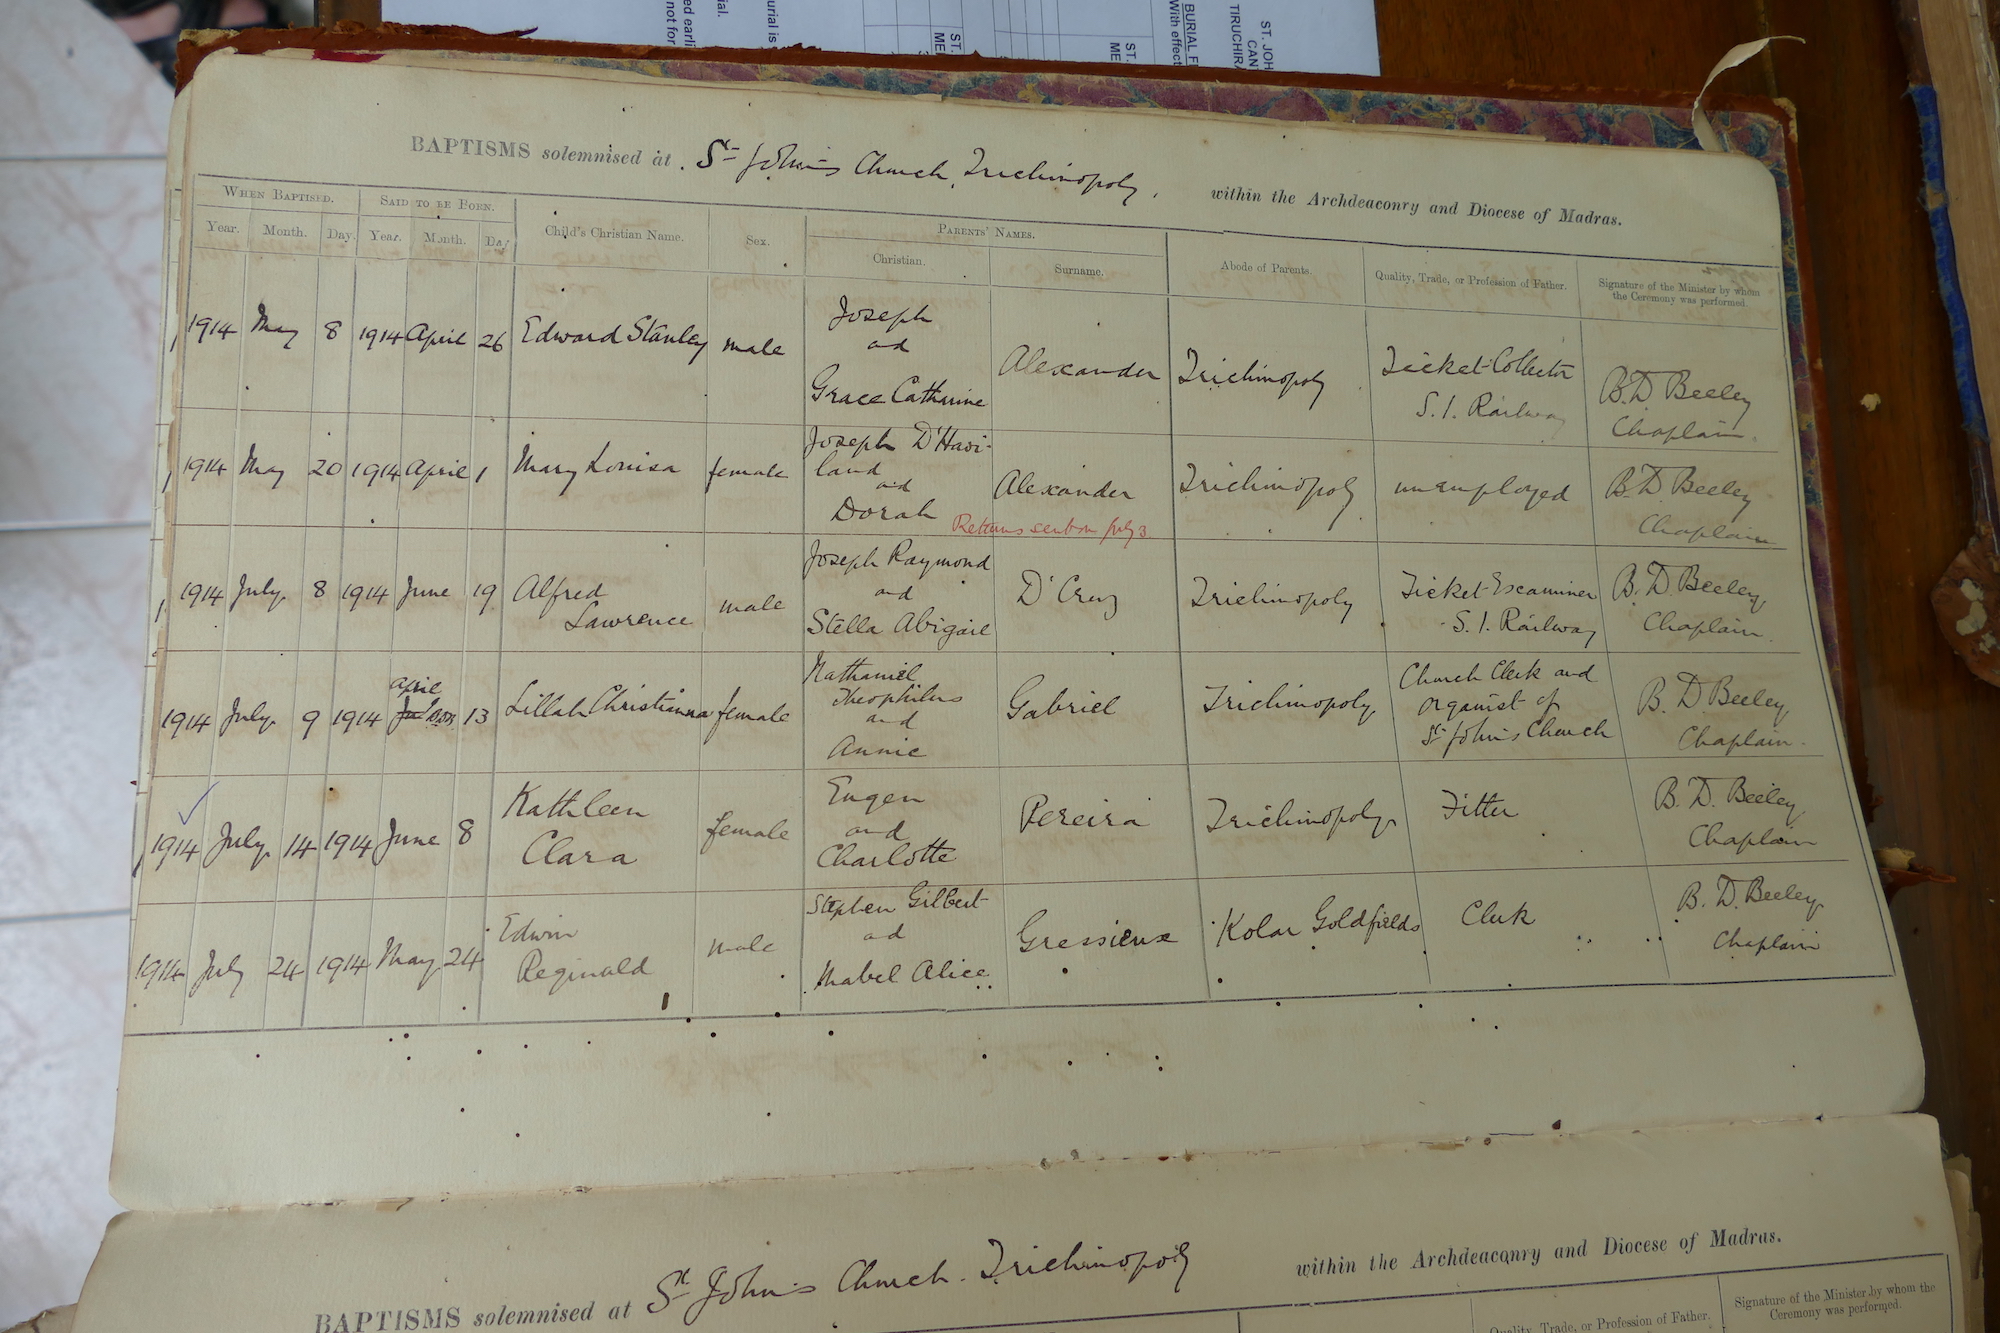 ST. JOH
CANT
TIRUCHIRA
BURIAL F
With effect
ST.
ME
ST.
ME
urial is
ial.
ed earli
not for
BAPTISMS solemnised at St John's Church, Trichinopoly, within the Archdeaconry and Diocese of Madras.
WHEN BAPTISED. SAID TO BE BORN. Child's Christian Name. Sex. PARENTS' NAMES. Abode of Parents. Quality, Trade, or Profession of Father. Signature of the Minister by whom
the Ceremony was performed.
Year. Month. Day. Year. Month. Day Christian. Surname.
1914 May 8 1914 April 26 Edward Stanley male Joseph
and
Grace Catharine Alexander Trichinopoly Ticket-Collector
S.I. Railway B.D Beeley
Chaplain.
1914 May 20 1914 April 1 Mary Louisa female Joseph D'Havi-
land
and
Dorah Alexander Trichinopoly unemployed B.D. Beeley
Chaplain
Returns sent on July 3.
1914 July. 8 1914 June 19 Alfred
Lawrence male Joseph Raymond
and
Stella Abigail D'Cruz Trichinopoly Ticket-Examiner
S.I. Railway B.D. Beeley,
Chaplain.
1914 July. 9 1914 April 13 Lillah Christianna female Nathaniel
Theophilus
and
Annie Gabriel Trichinopoly. Church Clerk and
organist of
St John's Church B.D Beeley,
Chaplain.
1914 July. 14 1914 June 8 Kathleen
Clara female Eugen
and
Charlotte Pereira Trichinopoly. Fitter B.D. Beeley,
Chaplain
1914 July 24 1914 May 24 Edwin
Reginald male Stephen Gilbert
and
Mabel Alice. Gressieux Kolar Goldfields Clerk B.D. Beeley.
Chaplain
BAPTISMS solemnised at St John's Church. Trichinopoly within the Archdeaconry and Diocese of Madras.
Quality, Trade, or Profession of Father. Signature of the Minister by whom the
Ceremony was performed.